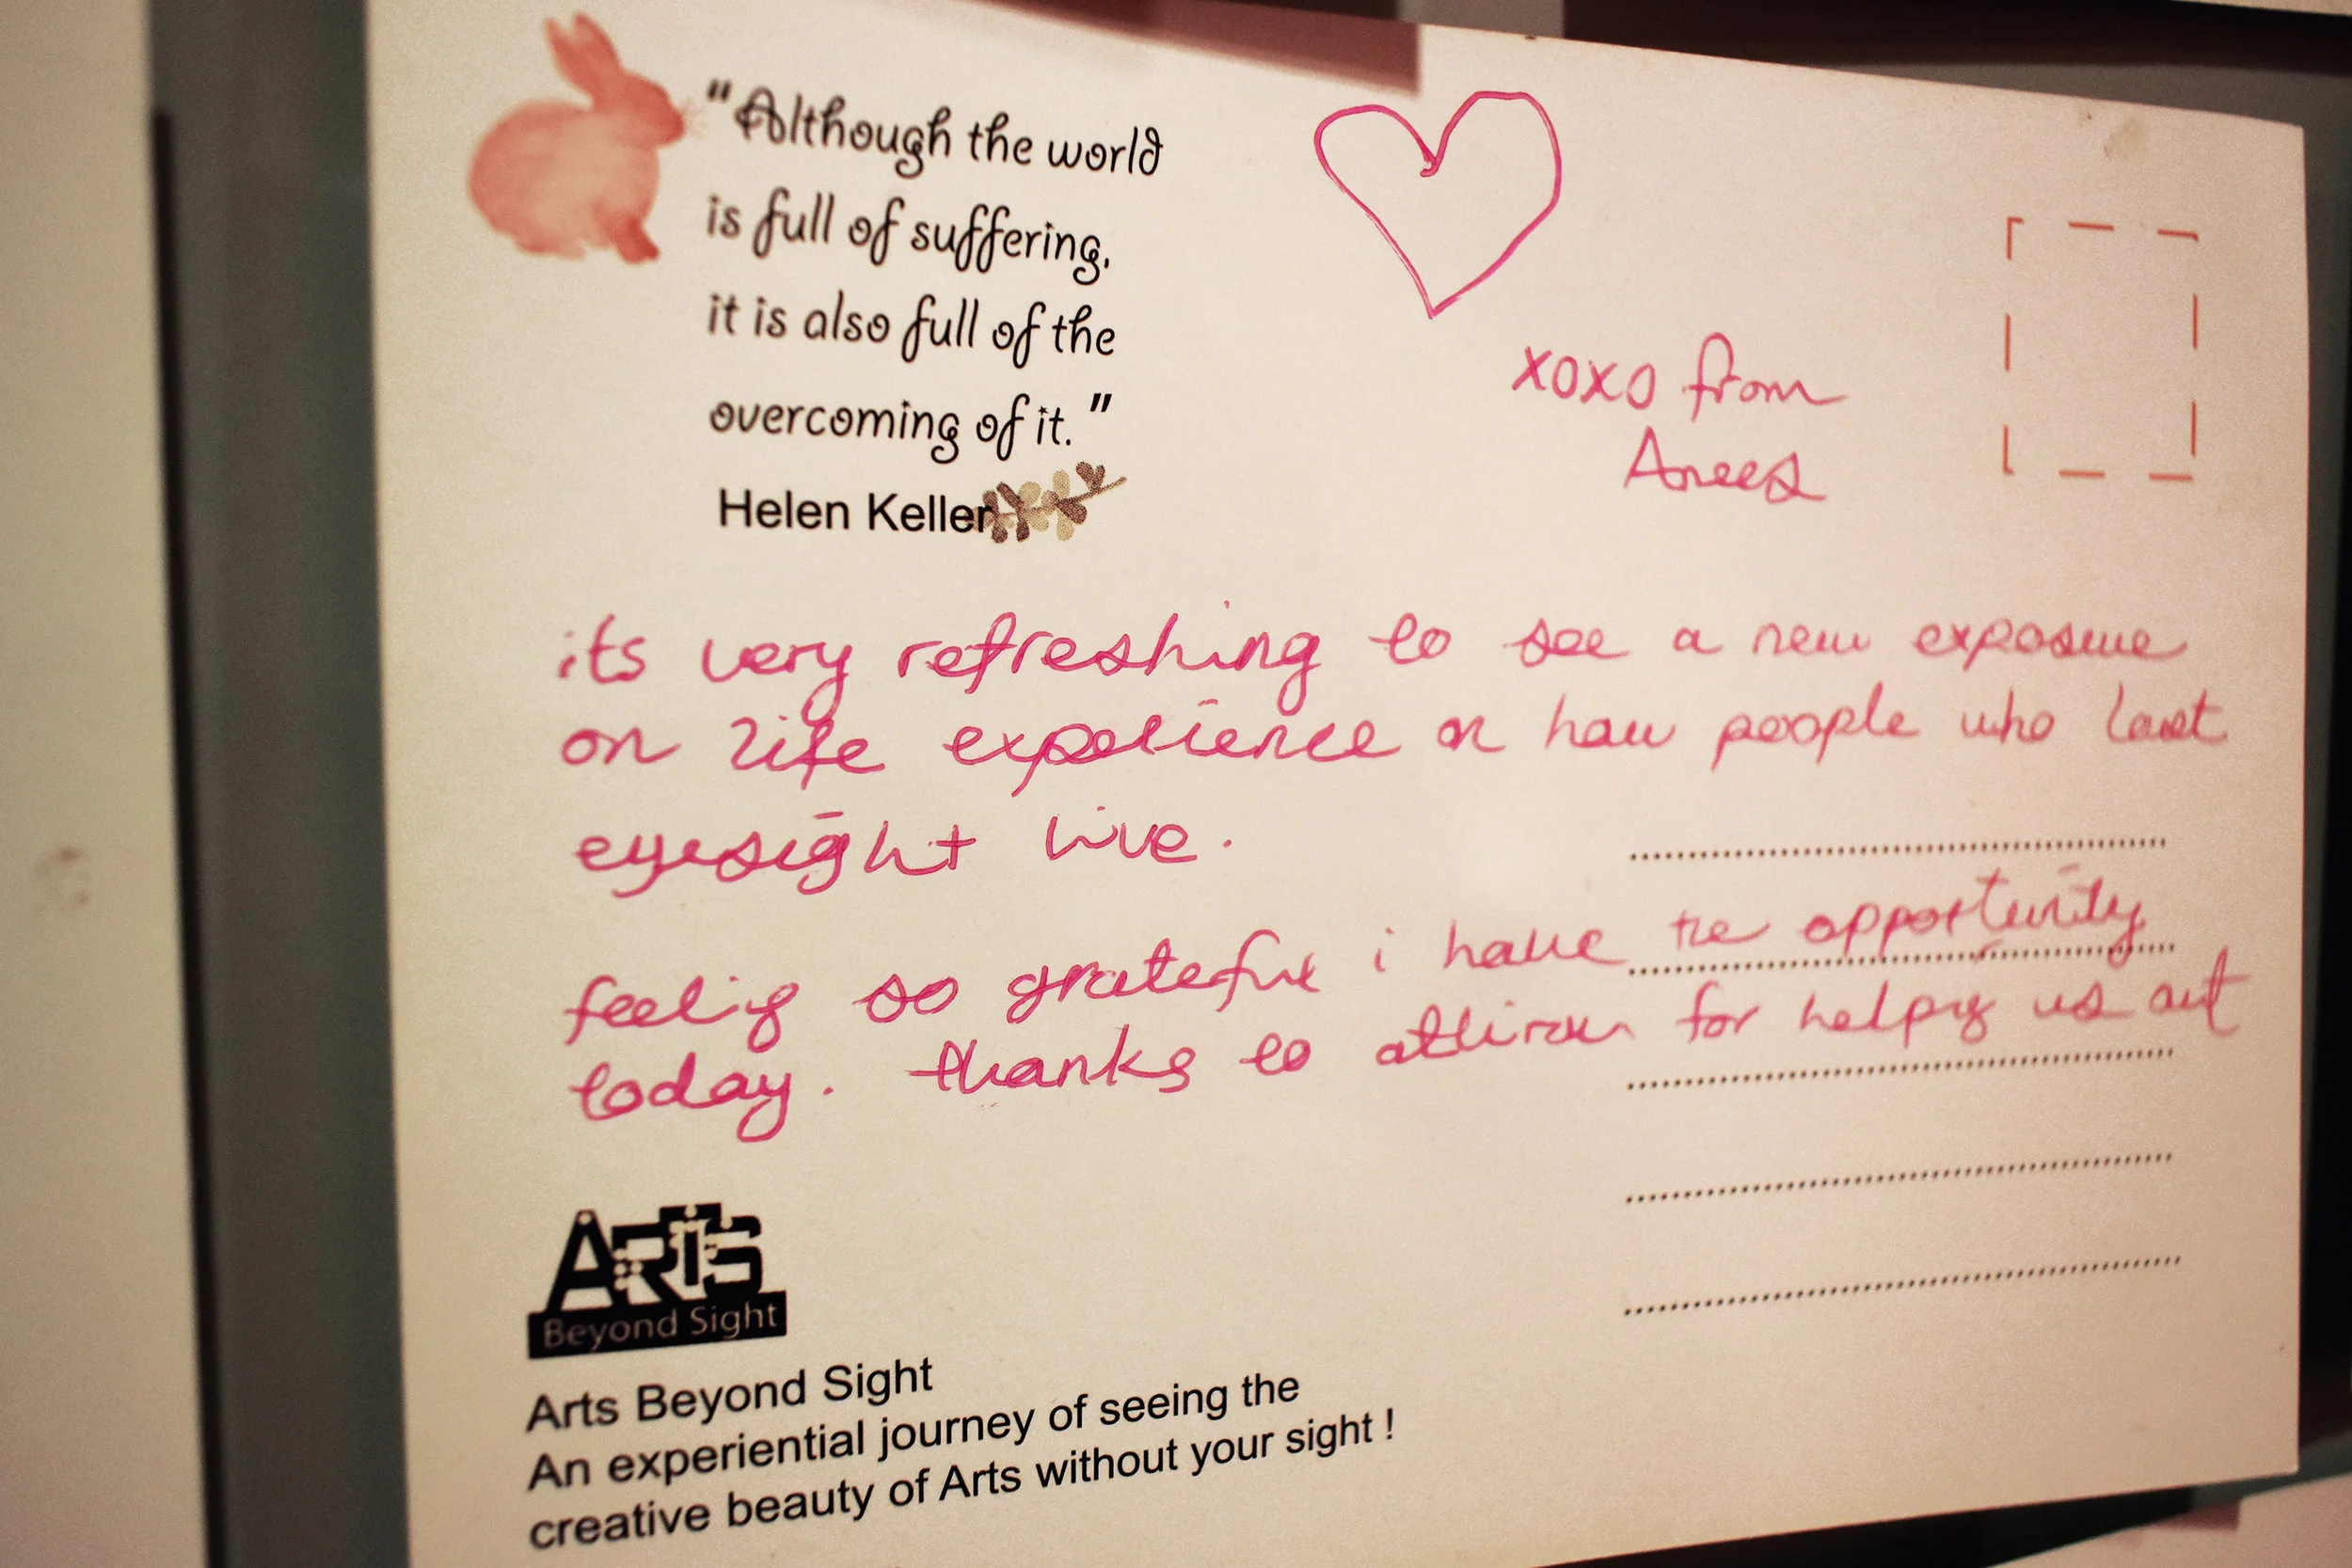 "Although the world
is full of suffering,
it is also full of the
overcoming of it."
Helen Keller
xoxo from
Anees
its very refreshing to see a new exposure
on life experience on how people who lost
eyesight live.
feeling so grateful i have the opportunity
today. thanks to for helping us out
ARTS
Beyond Sight
Arts Beyond Sight
An experiential journey of seeing the
creative beauty of Arts without your sight !